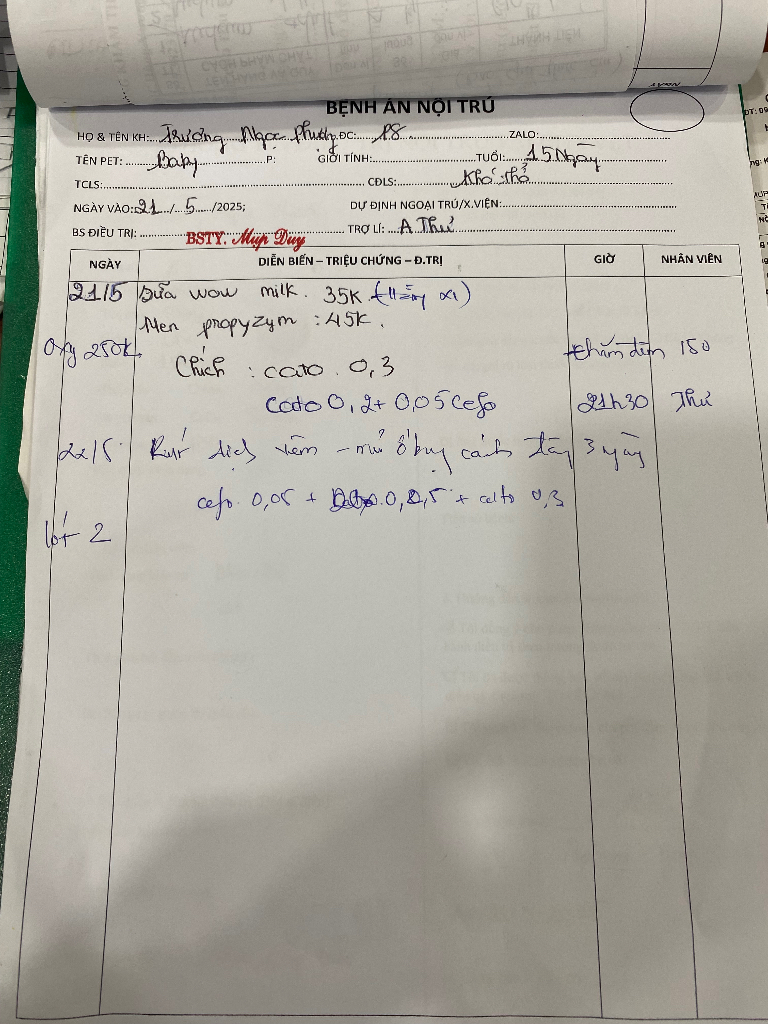 BỆNH ÁN NỘI TRÚ
HỌ & TÊN KH: Trương Ngọc Phương ĐC: P8 ZALO:
TÊN PET: Baby P: GIỚI TÍNH: TUỔI: 15 Ngày
TCLS: CĐLS: Khó thở
NGÀY VÀO: 21/5/2025; DỰ ĐỊNH NGOẠI TRÚ/X.VIỆN:
BS ĐIỀU TRỊ: BSTY. Mup Duy TRỢ LÍ: A Thư
NGÀY DIỄN BIẾN – TRIỆU CHỨNG – Đ.TRỊ GIỜ NHÂN VIÊN
21/5 Sữa wow milk. 35K
Men propyzym : 45K.
Oxy 250K chăm đêm 150
Chích : cato . 0,3
cato 0,2 + 0,05 cefo 21h30 Thư
22/5 Rút dịch viêm - mủ ổ bụng cách 3 ngày
cefo 0,05 + 0,3
lót 2